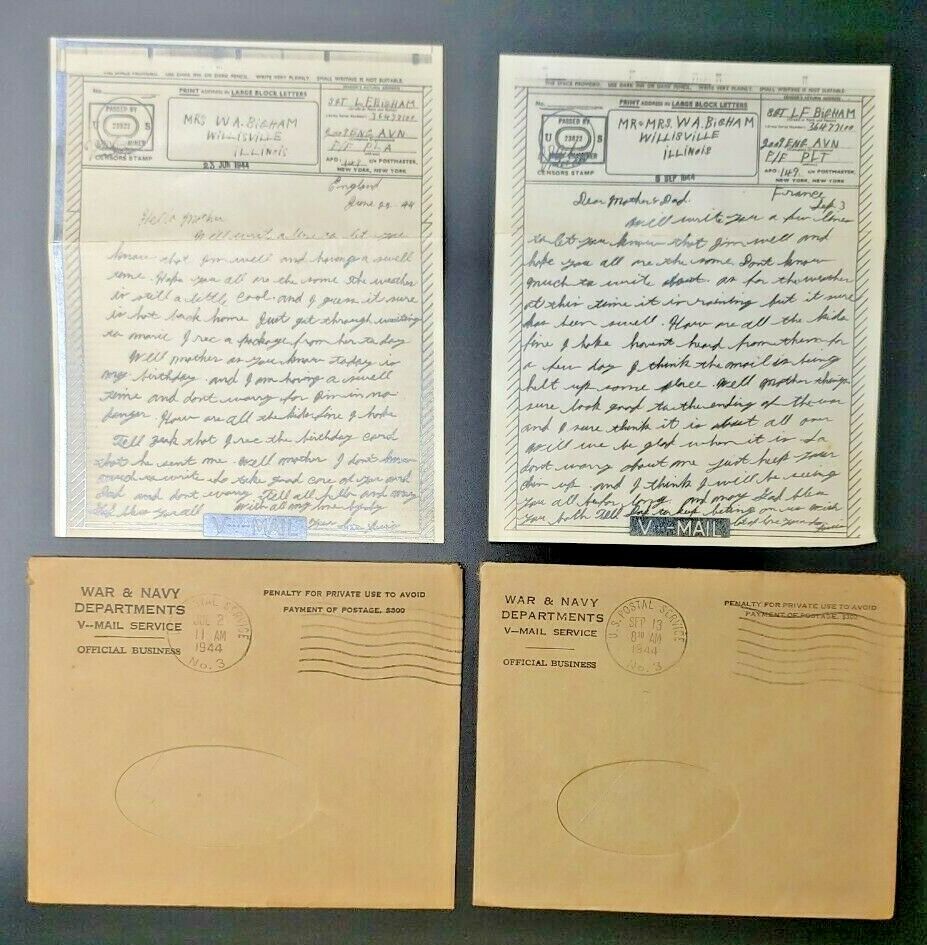 THE SPACE PROVIDED. USE DARK INK OR DARK PENCIL. WRITE VERY PLAINLY. SMALL WRITING IS NOT SUITABLE.
No.
PRINT ADDRESS IN LARGE BLOCK LETTERS
SENDER'S RETURN ADDRESS
PASSED BY
U S
CENSORS STAMP
MRS W A BIGHAM
WILLISVILLE
ILLINOIS
23 JUN 1944
SGT L F BIGHAM
36473100
2008 ENG. AVN
APO 149 c/o POSTMASTER,
NEW YORK, NEW YORK
England
June 22 - 44
Hello Mother
Well writ a line to let you
know that I'm well and having a swell
time. Hope you all are the same the weather
is still a little cool. and I guess it sure
is hot back home. Just got through writing
to marie I rec a package from her today
Well mother as you know today is
my birthday. and I am having a swell
time and dont worry for I'm in no
danger. How are all the kids fine I hope
Tell Zeek that I rec the birthday card
that he sent me. Well mother I don't know
much to write so take good care of you and
Dad and dont worry. Tell all hello and may
God bless you all With all my love
Your
V···—MAIL
THE SPACE PROVIDED. USE DARK INK OR DARK PENCIL. WRITE VERY PLAINLY. SMALL WRITING IS NOT SUITABLE.
No.
PRINT ADDRESS IN LARGE BLOCK LETTERS
SENDER'S RETURN ADDRESS
PASSED BY
U S
CENSORS STAMP
MR + MRS. W A BIGHAM
WILLISVILLE
ILLINOIS
SEP 1944
SGT L F BIGHAM
36473100
2008 ENG AVN
APO 149 c/o POSTMASTER,
NEW YORK, NEW YORK
France
Sept. 3
Dear Mother & Dad.
Will write you a few lines
to let you know that I'm well and
hope you all are the same. Dont know
much to write about. as for the weather
at this time it is raining but it sure
has been swell. How are all the kids
fine I hope havent heard from them for
a few day I think the mail is being
helt up some place. Well mother things
sure look good to the ending of the war
and I sure think it is about all over
will we be glad when it is so
dont worry about me just keep your
chin up. and I think I will be seeing
you all before long. and may God bless
you both Tell
V···—MAIL
WAR & NAVY
DEPARTMENTS
V--MAIL SERVICE
OFFICIAL BUSINESS
POSTAL SERVICE
11 AM
1944
No. 3
PENALTY FOR PRIVATE USE TO AVOID
PAYMENT OF POSTAGE, $300
WAR & NAVY
DEPARTMENTS
V--MAIL SERVICE
OFFICIAL BUSINESS
U.S. POSTAL SERVICE
SEP 13
8 30 AM
1944
No. 3
PENALTY FOR PRIVATE USE TO AVOID
PAYMENT OF POSTAGE, $300